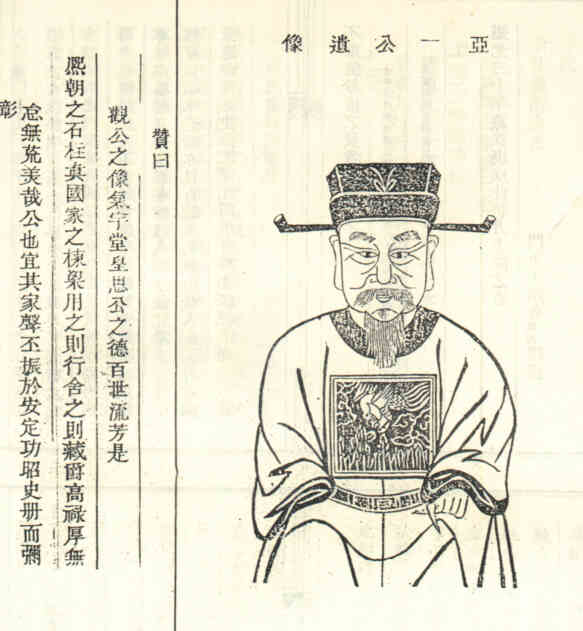 亞一公遺像
贊曰
觀公之像氣宇堂皇思公之德百世流芳是
熙朝之石柱真國家之棟梁用之則行舍之則藏爵高祿厚無
怠無荒美哉公也宜其家聲丕振於安定功昭史册而彌
彰